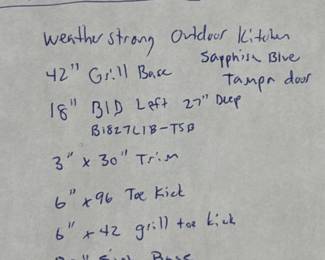 Weather strong Outdoor Kitchen
Sapphire Blue
42" Grill Base Tampa door
18" B1D Left 27" Deep
B1827L1B-TSB
3" x 30" Trim
6" x 96 Toe Kick
6" x 42 grill toe kick
Base